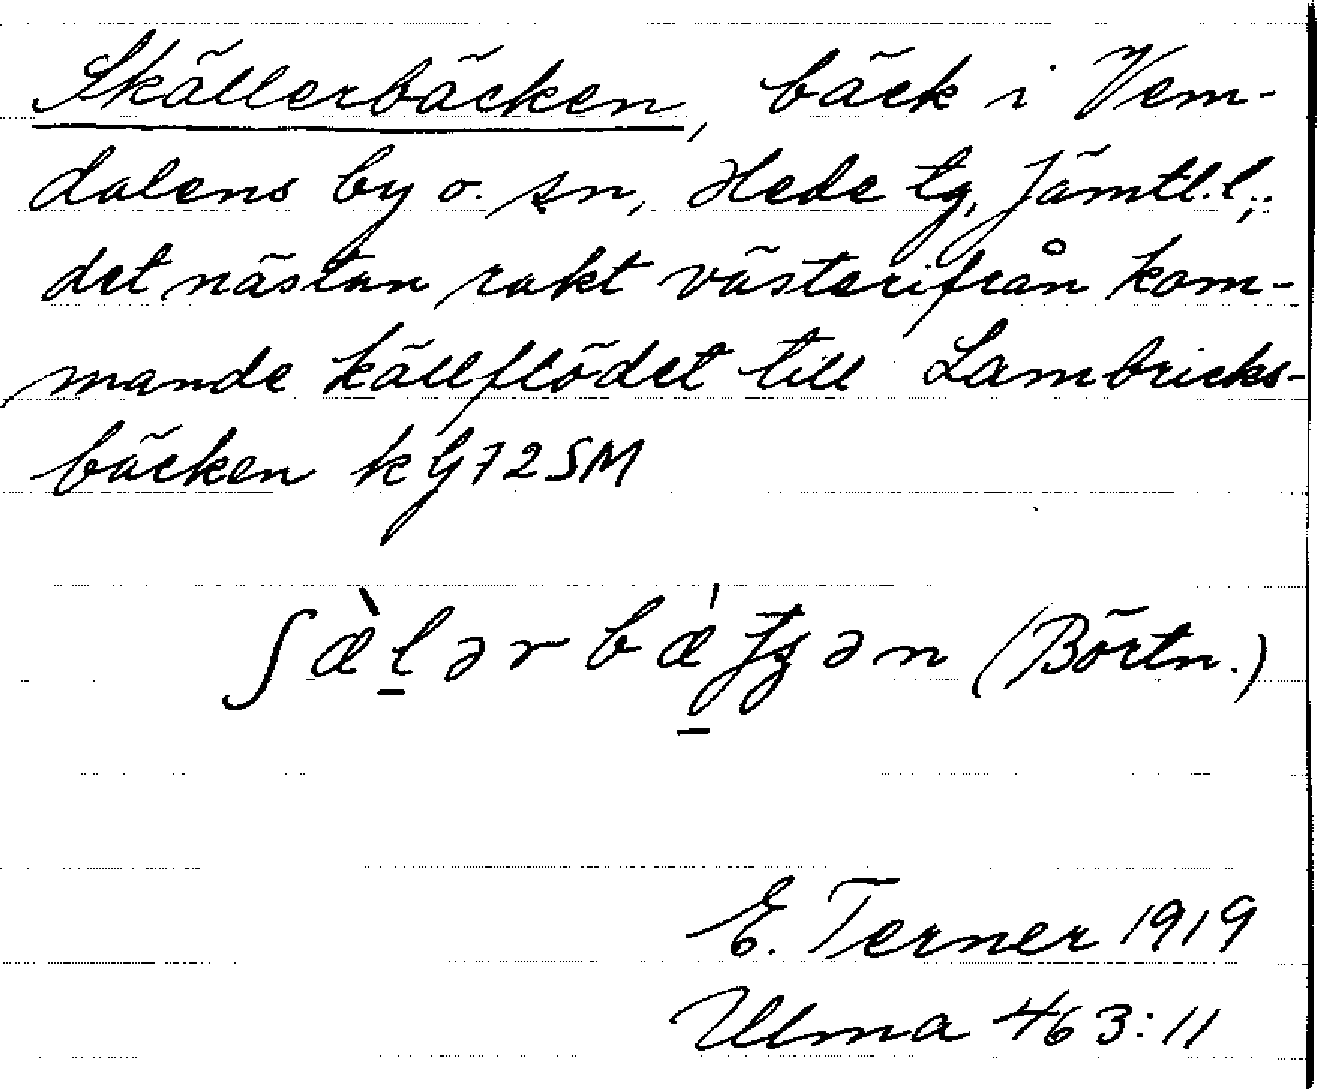 Skällerbäcken, bäck i Vem-
dalens by o. sn, Hede tg, Jämtl.l.;
det nästan rakt västerifrån kom-
mande källflödet till Lambricks-
bäcken kG72SM
(Börtn.)
E. Terner 1919
Ulma 463:11